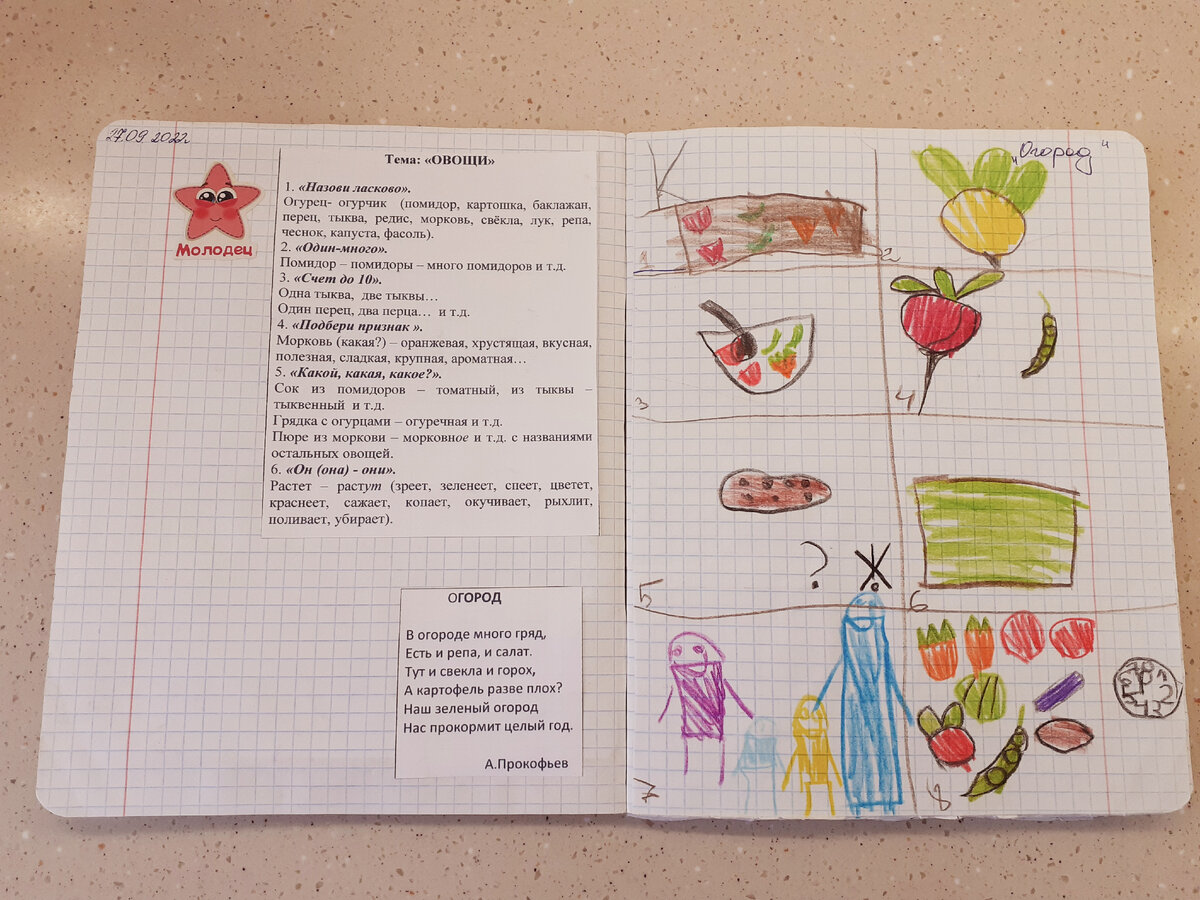 27.09.2022г
Молодец
Тема: «ОВОЩИ»
1. «Назови ласково».
Огурец- огурчик (помидор, картошка, баклажан,
перец, тыква, редис, морковь, свёкла, лук, репа,
чеснок, капуста, фасоль).
2. «Один-много».
Помидор – помидоры – много помидоров и т.д.
3. «Счет до 10».
Одна тыква, две тыквы…
Один перец, два перца… и т.д.
4. «Подбери признак ».
Морковь (какая?) – оранжевая, хрустящая, вкусная,
полезная, сладкая, крупная, ароматная…
5. «Какой, какая, какое?».
Сок из помидоров – томатный, из тыквы –
тыквенный и т.д.
Грядка с огурцами – огуречная и т.д.
Пюре из моркови – морковное и т.д. с названиями
остальных овощей.
6. «Он (она) - они».
Растет – растут (зреет, зеленеет, спеет, цветет,
краснеет, сажает, копает, окучивает, рыхлит,
поливает, убирает).
ОГОРОД
В огороде много гряд,
Есть и репа, и салат.
Тут и свекла и горох,
А картофель разве плох?
Наш зеленый огород
Нас прокормит целый год.
А.Прокофьев
„Огород"
1
2
3
4
5
?
Ж
6
7
8